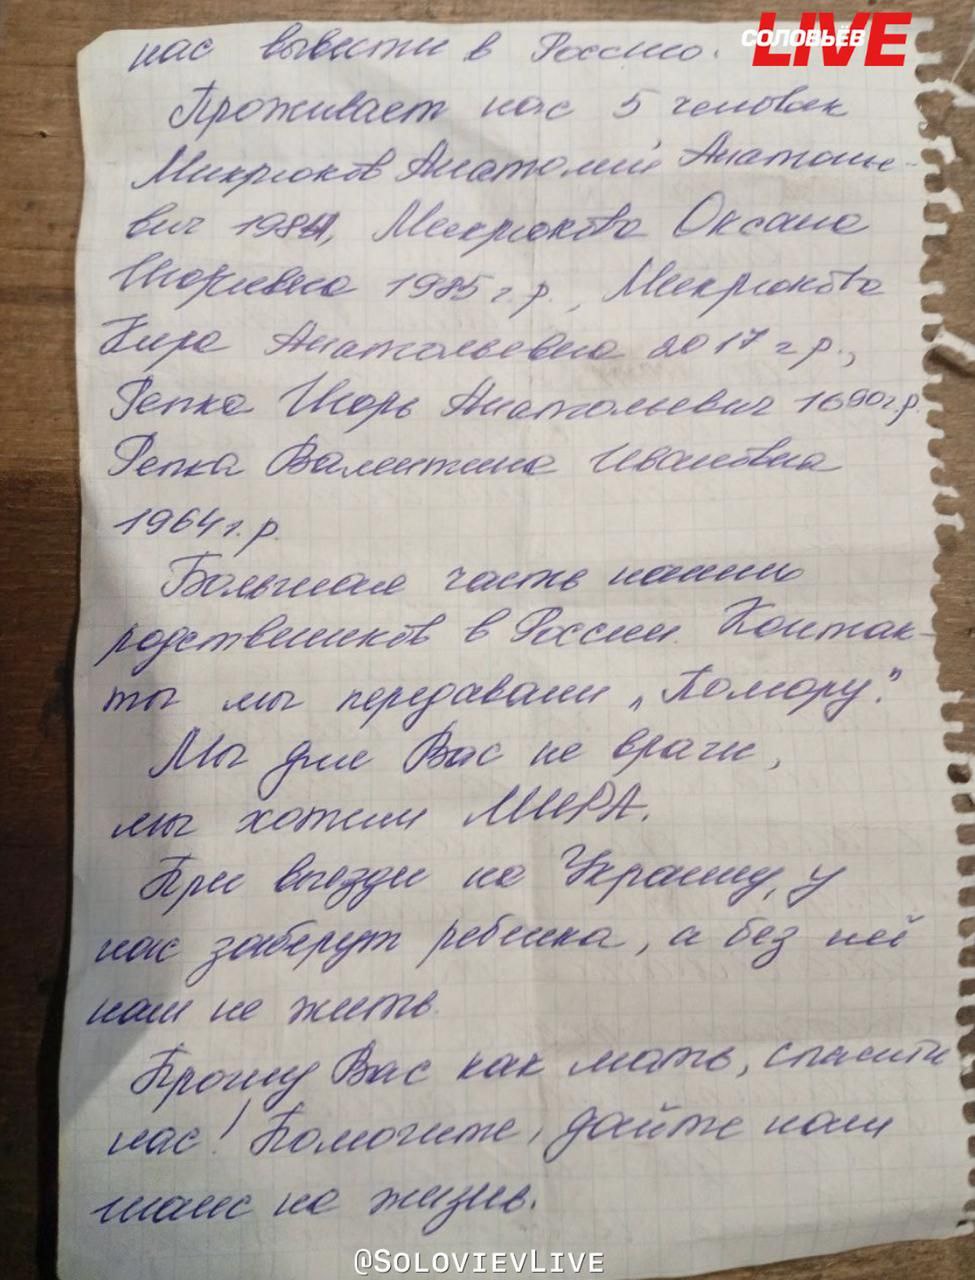 СОЛОВЬЁВ LIVE
нас вывести в Россию.
Проживает нас 5 человек
Микрюков Анатолий Анатолье-
вич 1984, Микрюкова Оксана
Игоревна 1985 г.р., Микрюкова
Кира Анатольевна 2017 г.р.,
Репка Игорь Анатольевич 1690г.р.
Репка Валентина Ивановна
1964 г.р.
Большая часть наших
родственников в России. Контак-
ты мы передавали „Помору".
Мы для Вас не враги,
мы хотим МИРА.
При выезди на Украину, у
нас заберут ребенка, а без неё
нам не жить.
Прошу Вас как мать, спасите
нас! Помогите, дайте нам
шанс на жизнь.
@SOLOVIEVLIVE